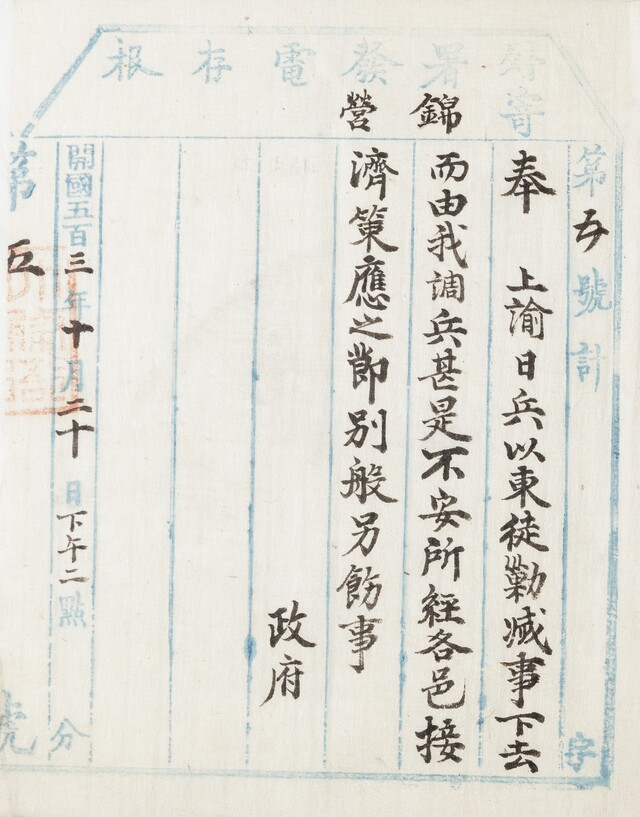 寄署發電存根
第五號計 字
奉 上諭日兵以東徒勦滅事下去
錦 而由我調兵甚是不安所經各邑接
營 濟策應之節別般另飭事
政府
開國五百三年十月二十日下午二點 分
第五 號